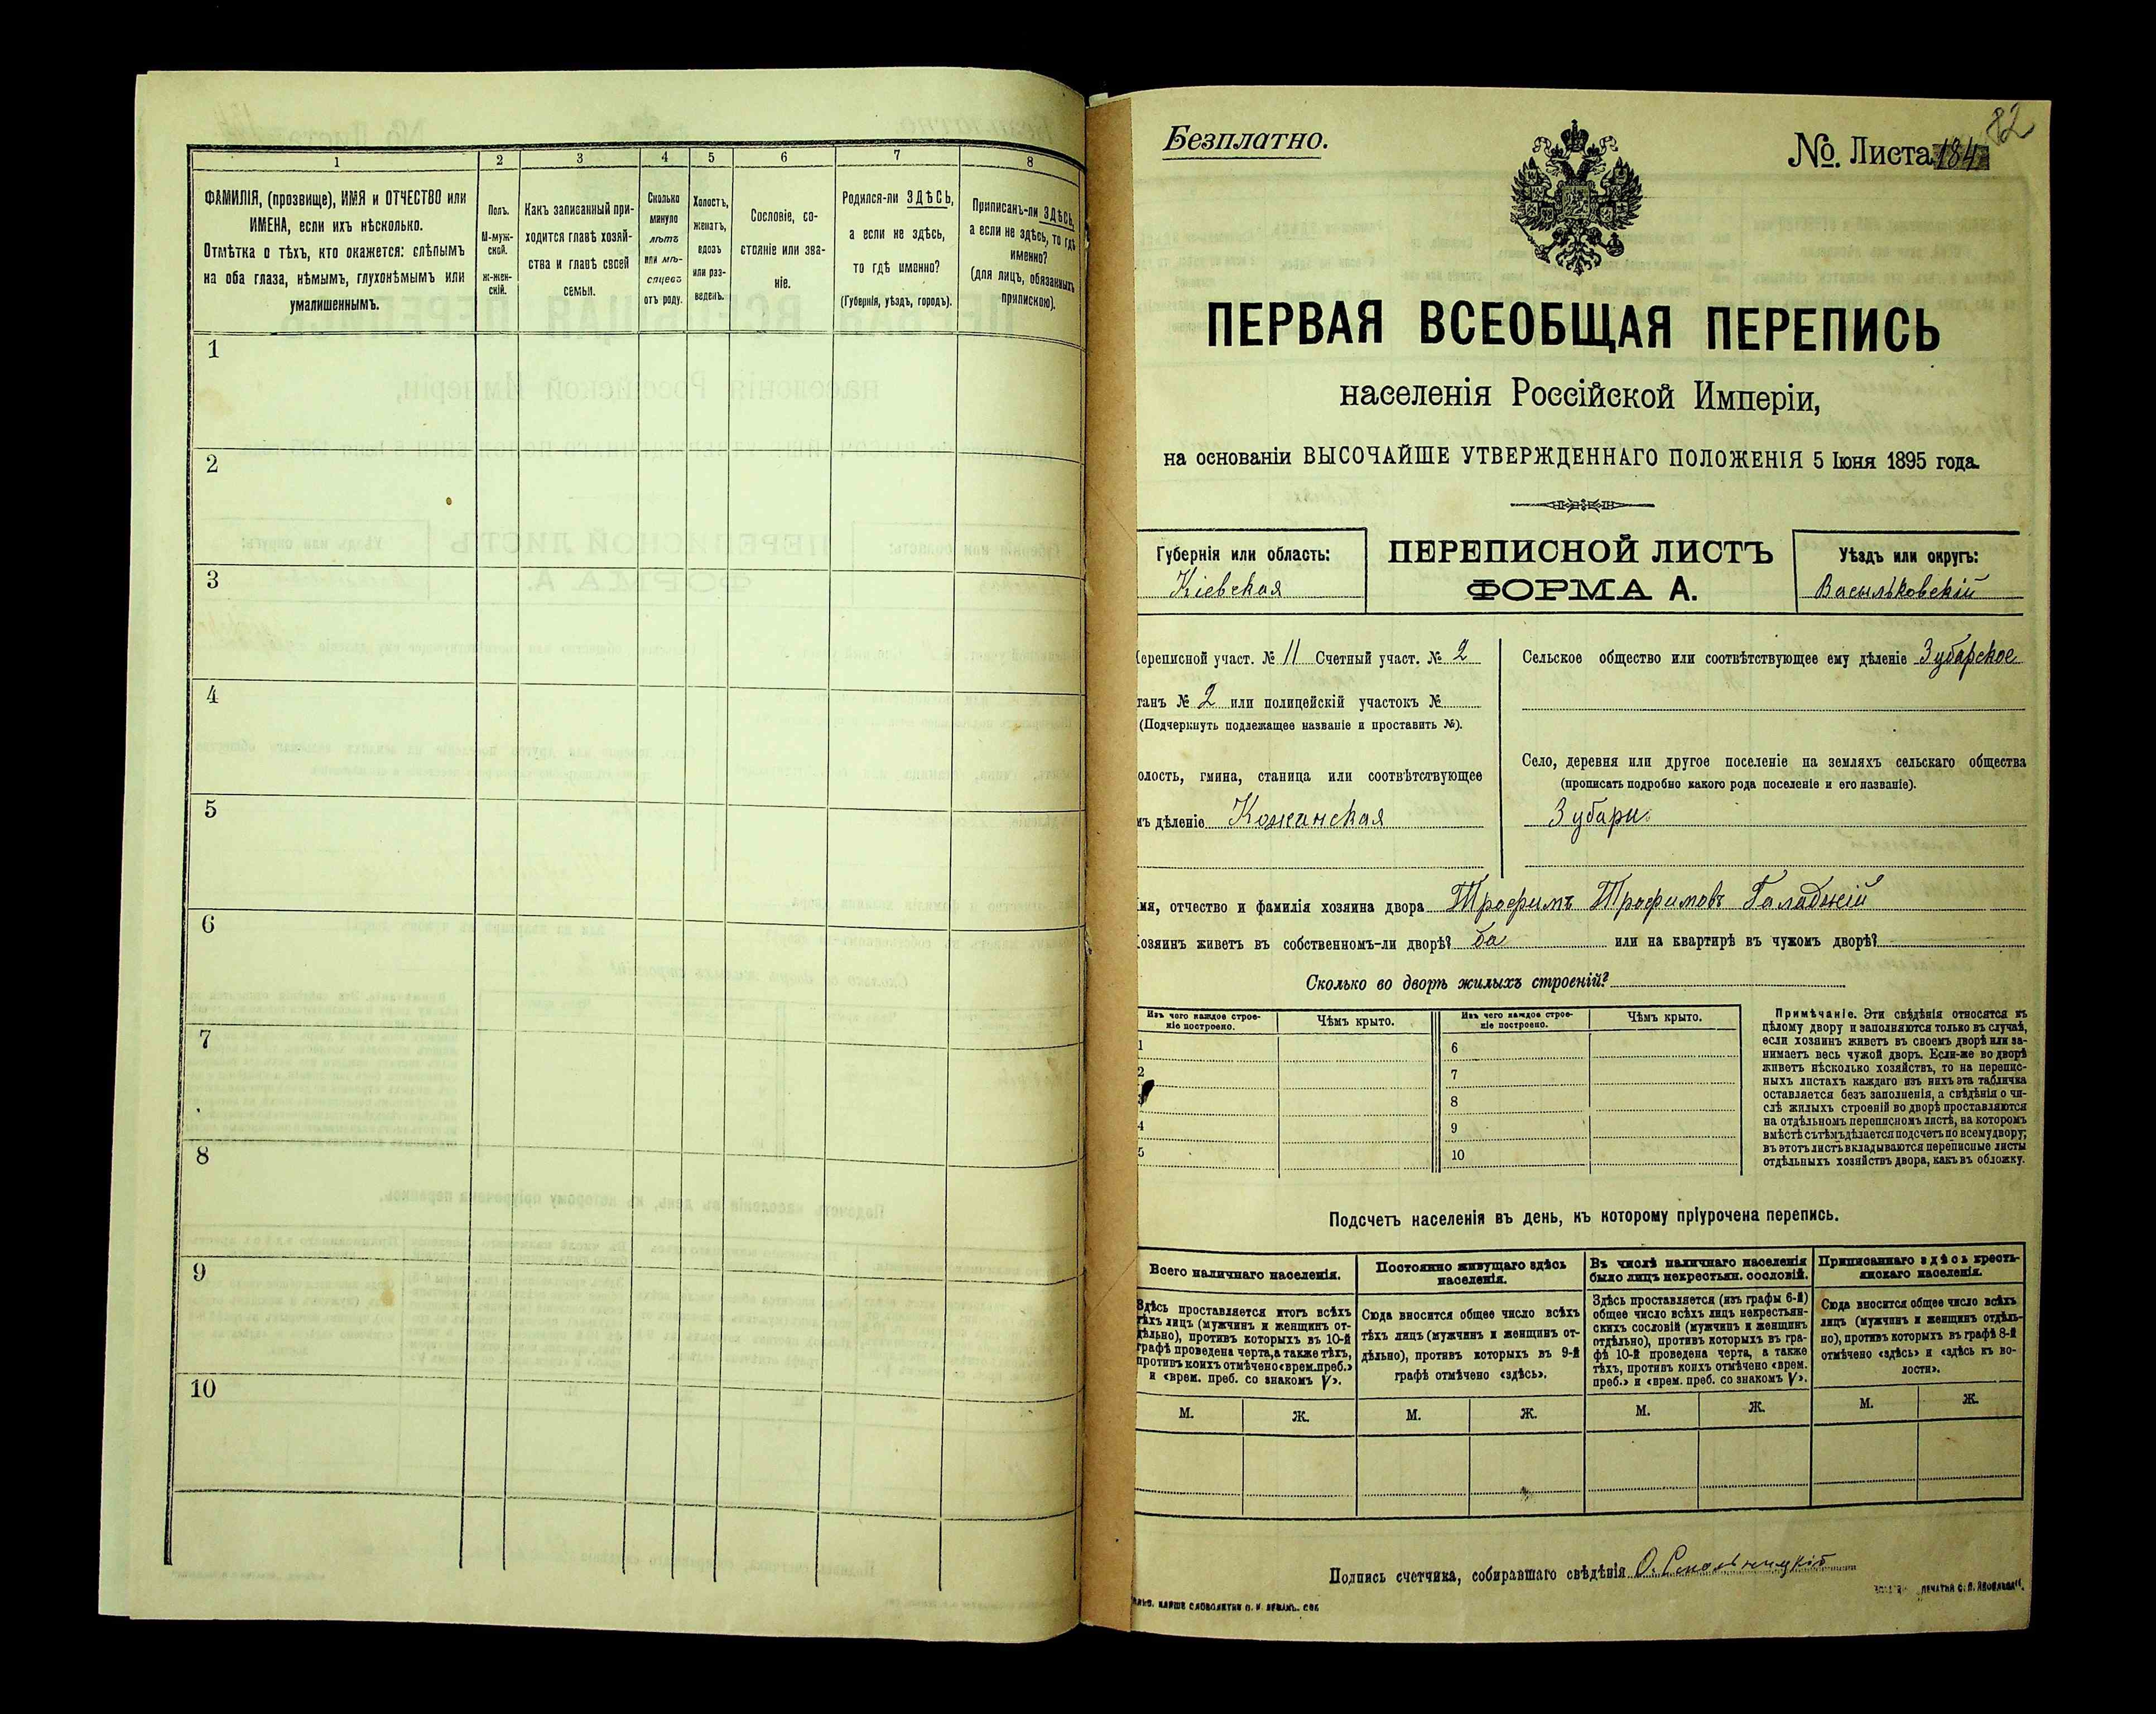 1 2 3 4 5 6 7 8
ФАМИЛІЯ, (прозвище), ИМЯ и ОТЧЕСТВО или
ИМЕНА, если ихъ нѣсколько.
Отмѣтка о тѣхъ, кто окажется: слѣпымъ
на оба глаза, нѣмымъ, глухонѣмымъ или
умалишеннымъ.
Полъ.
М-муж-
ской.
ж-жен-
скій.
Какъ записанный при-
ходится главѣ хозяй-
ства и главѣ своей
семьи.
Сколько
минуло
лѣтъ
или мѣ-
сяцевъ
отъ роду.
Холостъ,
женатъ,
вдовъ
или раз-
веденъ.
Сословіе, со-
стояніе или зва-
ніе.
Родился-ли ЗДѢСЬ,
а если не здѣсь,
то гдѣ именно?
(Губернія, уѣздъ, городъ).
Приписанъ-ли ЗДѢСЬ,
а если не здѣсь, то гдѣ
именно?
(для лицъ, обязанныхъ
припискою).
1
2
3
4
5
6
7
8
9
10
82
Безплатно.
№. Листа 184
ПЕРВАЯ ВСЕОБЩАЯ ПЕРЕПИСЬ
населенія Россійской Имперіи,
на основаніи ВЫСОЧАЙШЕ УТВЕРЖДЕННАГО ПОЛОЖЕНІЯ 5 Іюня 1895 года.
Губернія или область:
Кіевская
ПЕРЕПИСНОЙ ЛИСТЪ
ФОРМА А.
Уѣздъ или округъ:
Васильковскій
Переписной участ. № 11 Счетный участ. № 2
танъ № 2 или полицейскій участокъ №
(Подчеркнуть подлежащее названіе и проставить №).
олость, гмина, станица или соотвѣтствующее
мъ дѣленіе Кожанская
Сельское общество или соотвѣтствующее ему дѣленіе Зубарское
Село, деревня или другое поселеніе на земляхъ сельскаго общества
(прописать подробно какого рода поселеніе и его названіе).
Зубари
мя, отчество и фамилія хозяина двора Трофимъ Трофимовъ Галаджій
озяинъ живетъ въ собственномъ-ли дворѣ? да или на квартирѣ въ чужомъ дворѣ?
Сколько во дворѣ жилыхъ строеній?
Изъ чего каждое строе-
ніе построено.
Чѣмъ крыто.
Изъ чего каждое строе-
ніе построено.
Чѣмъ крыто.
1 6
2 7
3 8
4 9
5 10
Примѣчаніе. Эти свѣдѣнія относятся къ
цѣлому двору и заполняются только въ случаѣ,
если хозяинъ живетъ въ своемъ дворѣ или за-
нимаетъ весь чужой дворъ. Если-же во дворѣ
живетъ нѣсколько хозяйствъ, то на перепис-
ныхъ листахъ каждаго изъ нихъ эта табличка
оставляется безъ заполненія, а свѣдѣнія о чи-
слѣ жилыхъ строеній во дворѣ проставляются
на отдѣльномъ переписномъ листѣ, на которомъ
вмѣстѣ съ тѣмъ дѣлается подсчетъ по всему двору;
въ этотъ листъ вкладываются переписные листы
отдѣльныхъ хозяйствъ двора, какъ въ обложку.
Подсчетъ населенія въ день, къ которому пріурочена перепись.
Всего наличнаго населенія.
Здѣсь проставляется итогъ всѣхъ
тѣхъ лицъ (мужчинъ и женщинъ от-
дѣльно), противъ которыхъ въ 10-й
графѣ проведена черта, а также тѣхъ,
противъ коихъ отмѣчено «врем. преб.»
и «врем. преб. со знакомъ V».
Постоянно живущаго здѣсь
населенія.
Сюда вносится общее число всѣхъ
тѣхъ лицъ (мужчинъ и женщинъ от-
дѣльно), противъ которыхъ въ 9-й
графѣ отмѣчено «здѣсь».
Въ числѣ наличнаго населенія
было лицъ некрестьян. сословій.
Здѣсь проставляется (изъ графы 6-й)
общее число всѣхъ лицъ некрестьян-
скихъ сословій (мужчинъ и женщинъ
отдѣльно), противъ которыхъ въ гра-
фѣ 10-й проведена черта, а также
тѣхъ, противъ коихъ отмѣчено «врем.
преб.» и «врем. преб. со знакомъ V».
Приписаннаго здѣсь кресть-
янскаго населенія.
Сюда вносится общее число всѣхъ
лицъ (мужчинъ и женщинъ отдѣль-
но), противъ которыхъ въ графѣ 8-й
отмѣчено «здѣсь» и «здѣсь къ во-
лости».
М. Ж. М. Ж. М. Ж. М. Ж.
Подпись счетчика, собиравшаго свѣдѣнія О.